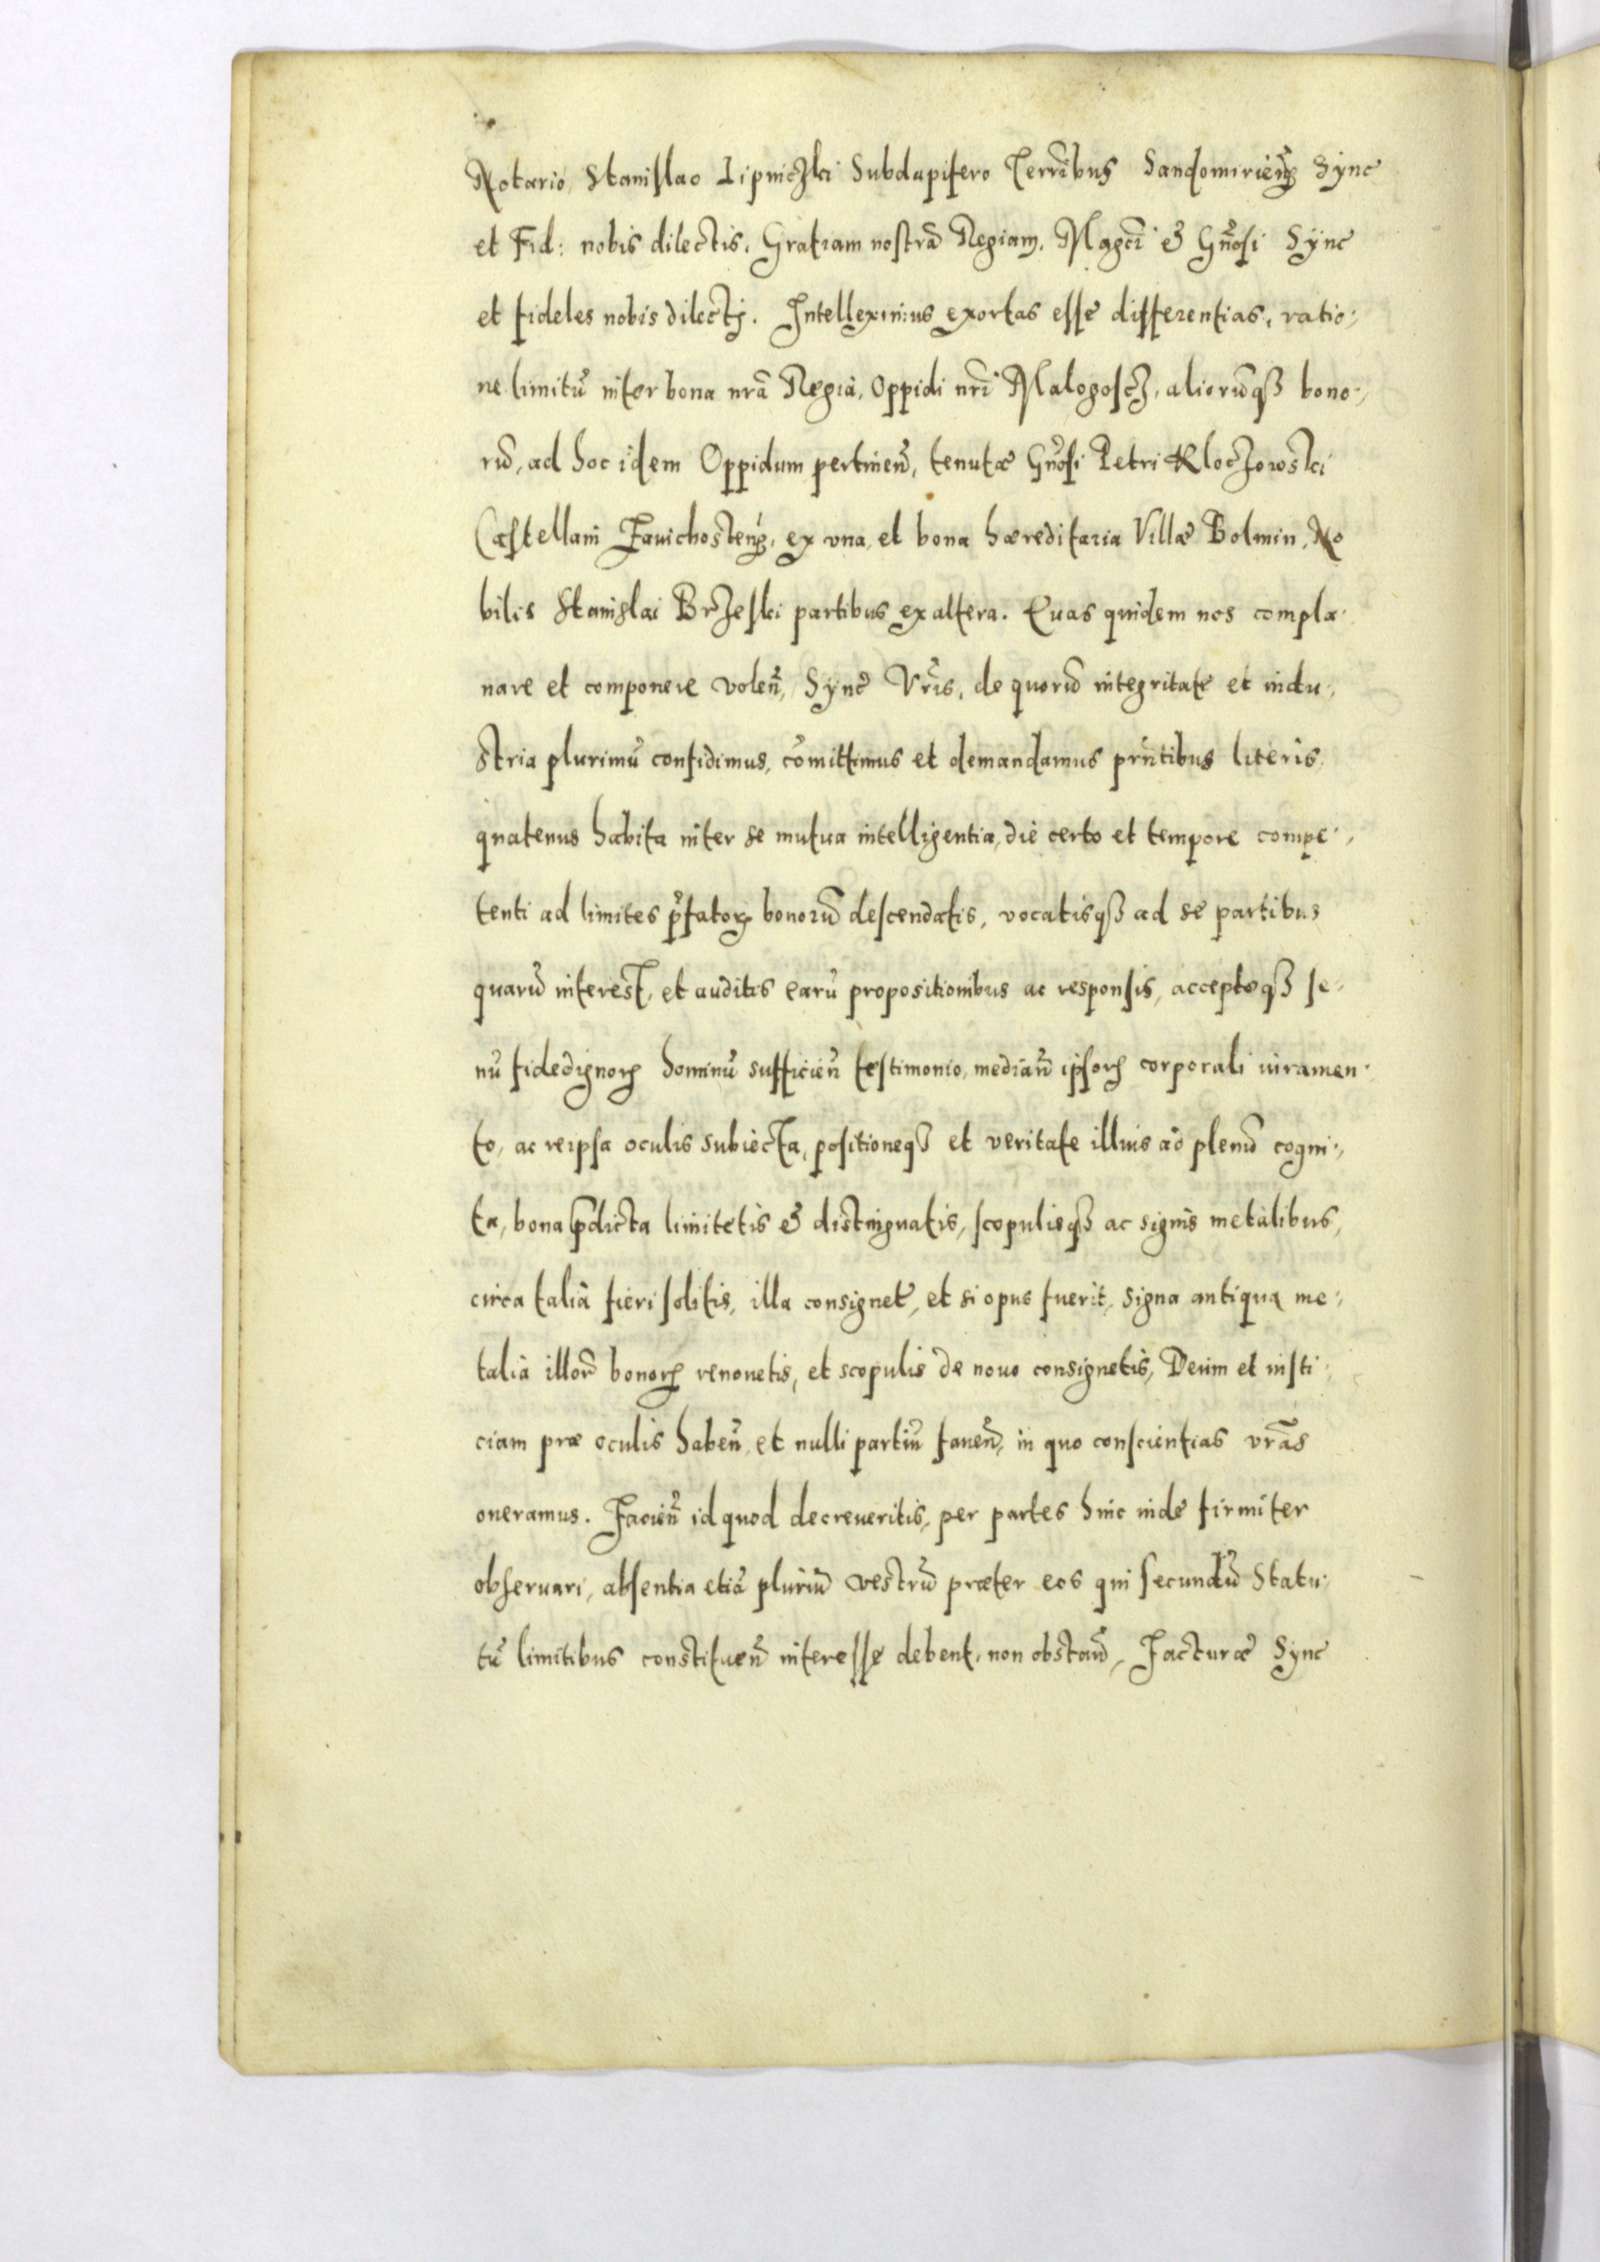 Notario, Stanislao Lipniczki Subdapifero Terrībus Sandomirieñ Sync
et Fid: nobis dilectis, Gratiam nostrā Regiam. Magcī & Gñosi Sync
et fideles nobis dilectj. Intelleximus exortas esse differentias, ratio-
ne limitū inter bona nrā Regia, Oppidi nrī Malogoscz, aliorūqꝫ bono-
rū, ad hoc idem Oppidum pertineñ, tenutæ Gñosi Petri Kloczowski
Castellani Zauichosteñ, ex vna, et bona hæreditaria Villæ Bolmin, No
bilis Stanislai Brzeski partibus ex altera. Quas quidem nos compla-
nare et componere voleñ, Sync Vrīs, de quorū integritate et indu-
stria plurimū confidimus, cōmittimus et demandamus prñtibus literis,
quatenus habita inter se mutua intelligentia, die certo et tempore compe-
tenti ad limites p̄fatoꝝ bonorū descendatis, vocatisqꝫ ad se partibus
quarū interest, et auditis earū propositionibus ac responsis, acceptoqꝫ se-
nū fidedignoꝝ hominū sufficieñ testimonio, mediañ ipsoꝝ corporali iuramen-
to, ac reipsa oculis subiecta, positioneqꝫ et veritate illius ad plenū cogni-
ta, bona p̄dicta limitetis & distinguatis, scopulisqꝫ ac signis metalibus,
circa talia fieri solitis, illa consignet, et si opus fuerit, signa antiqua me-
talia illorū bonoꝝ renouetis, et scopulis de nouo consignetis, Deum et iusti-
ciam præ oculis habeñ, et nulli partiū faueñ, in quo conscientias vrās
oneramus. Facieñ id quod decreueritis, per partes hinc inde firmiter
obseruari, absentia etiā pluriū vestrū præter eos qui secundū Statu-
tū limitibus constitueñ interesse debent, non obstañ, Facturæ Sync